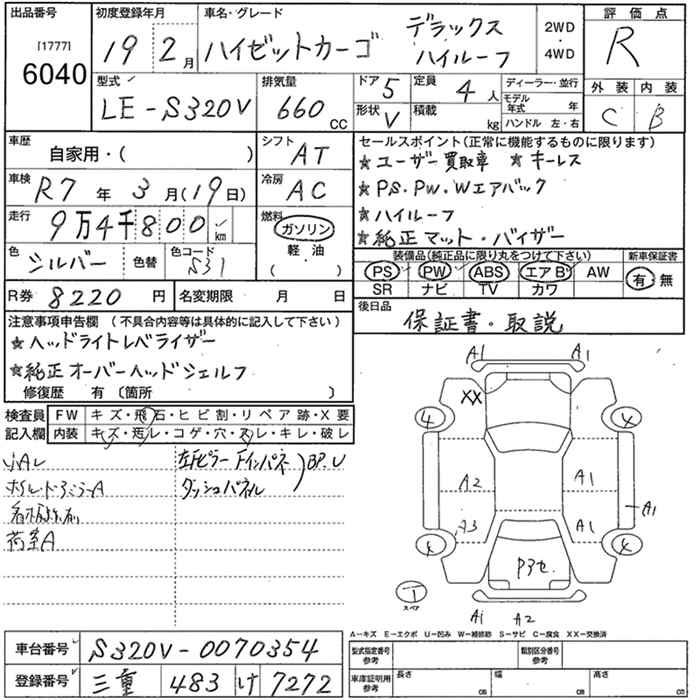 出品番号 [1777] 6040
初度登録年月 19 2月
車名・グレード ハイゼットカーゴ デラックス ハイルーフ
2WD・4WD
評価点 R
型式 LE-S320V
排気量 660 CC
ドア 5
定員 4人
形状 V
積載 kg
ディーラー・並行
モデル年式 年
ハンドル 左・右
外装 内装
C B
車歴 自家用・( )
シフト AT
車検 R7年 3月(19日)
冷房 AC
走行 9万4千800 km
燃料 ガソリン 軽・油 ( ・ )
色 シルバー 色替
色コード S31
R券 8220円
名変期限 月 日
セールスポイント(正常に機能するものに限ります)
★ユーザー買取車 ★キーレス
★PS.PW.Wエアバック
★ハイルーフ
★純正マット・バイザー
装備品(純正品に限り丸をつけて下さい)
新車保証書
PS PW ABS エアB AW
SR ナビ TV カワ
有・無
後日品
保証書・取説
注意事項申告欄 (不具合内容等は具体的に記入して下さい)
★ヘッドライトレベライザー
★純正オーバーヘッドシェルフ
修復歴 有 〔箇所 〕
検査員記入欄
FW キズ・飛石・ヒビ割・リペア跡・X要
内装 キズ・汚レ・コゲ・穴・スレ・キレ・破レ
小AL
左Fピラー Fインパネ BP.U
ホイル・ドアミラーA
ダッシュパネル
荷室A
A1 A1
XX
4 4
A2 A1
A3 A1
A1
4 4
P3セ
T
スペア
A1 A2
A―キズ E―エクボ U―凹み W―補修跡 S―サビ C―腐食 XX―交換済
車台番号 S320V-0070354
登録番号 三重 483 け 7272
型式指定番号 参考
類別区分番号 参考
車庫証明用 参考
長さ cm
幅 cm
高さ cm